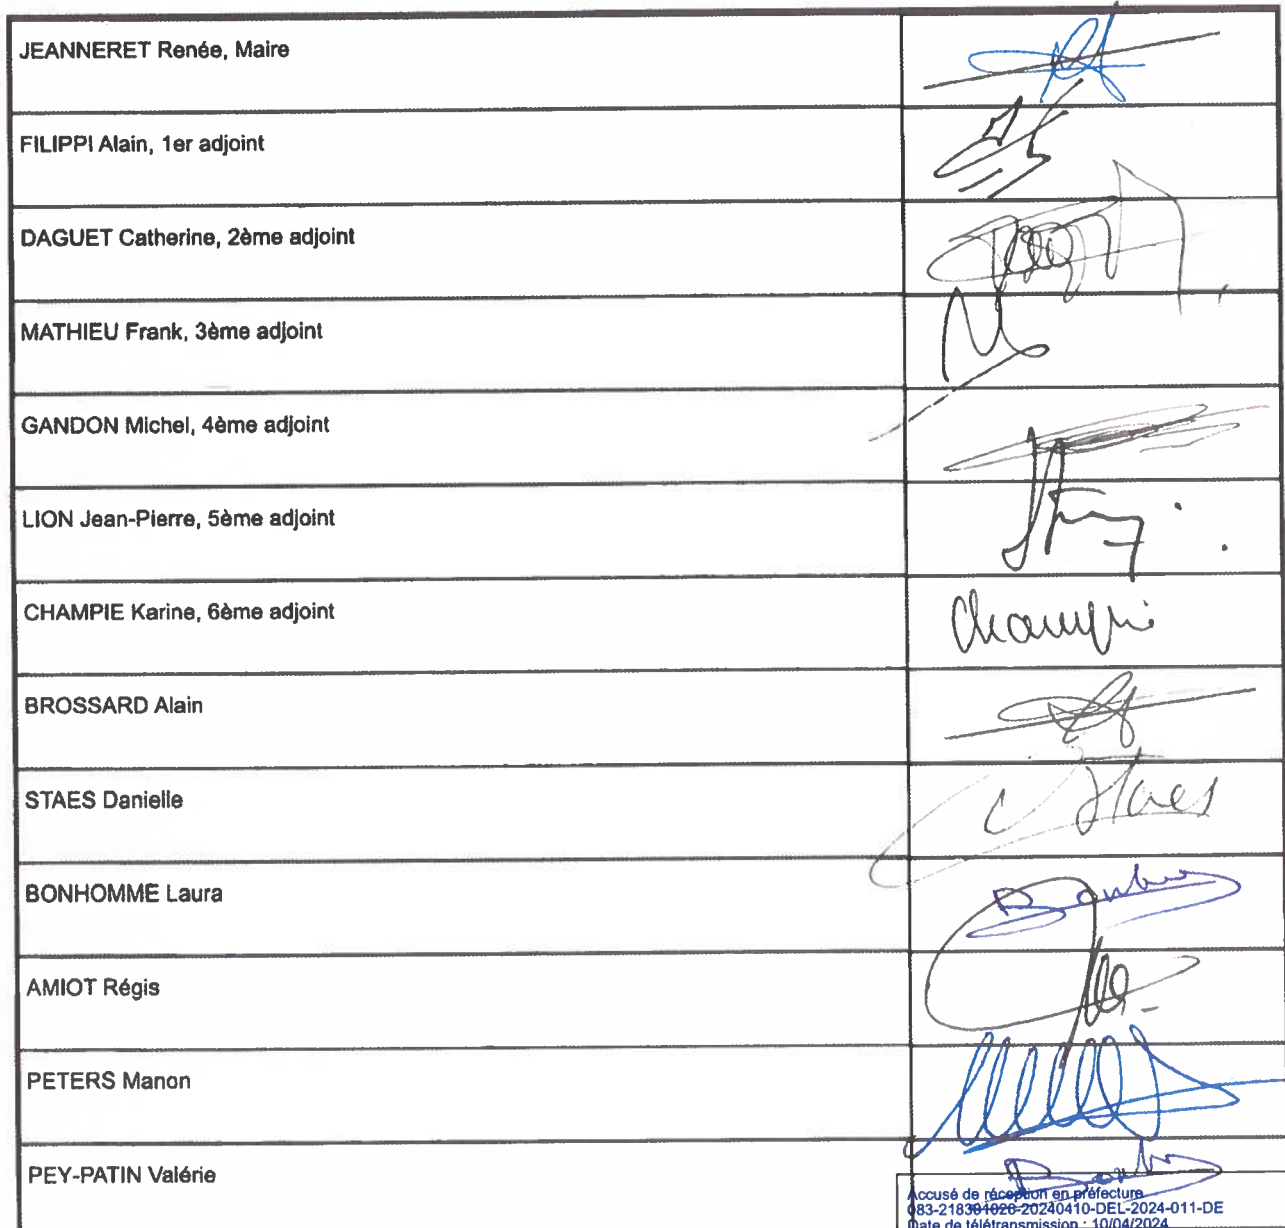 JEANNERET Renée, Maire
FILIPPI Alain, 1er adjoint
DAGUET Catherine, 2ème adjoint
MATHIEU Frank, 3ème adjoint
GANDON Michel, 4ème adjoint
LION Jean-Pierre, 5ème adjoint
CHAMPIE Karine, 6ème adjoint
Champie
BROSSARD Alain
STAES Danielle
Staes
BONHOMME Laura
AMIOT Régis
PETERS Manon
PEY-PATIN Valérie
Accusé de réception en préfecture
083-218301028-20240410-DEL-2024-011-DE
Date de télétransmission : 10/04/2024